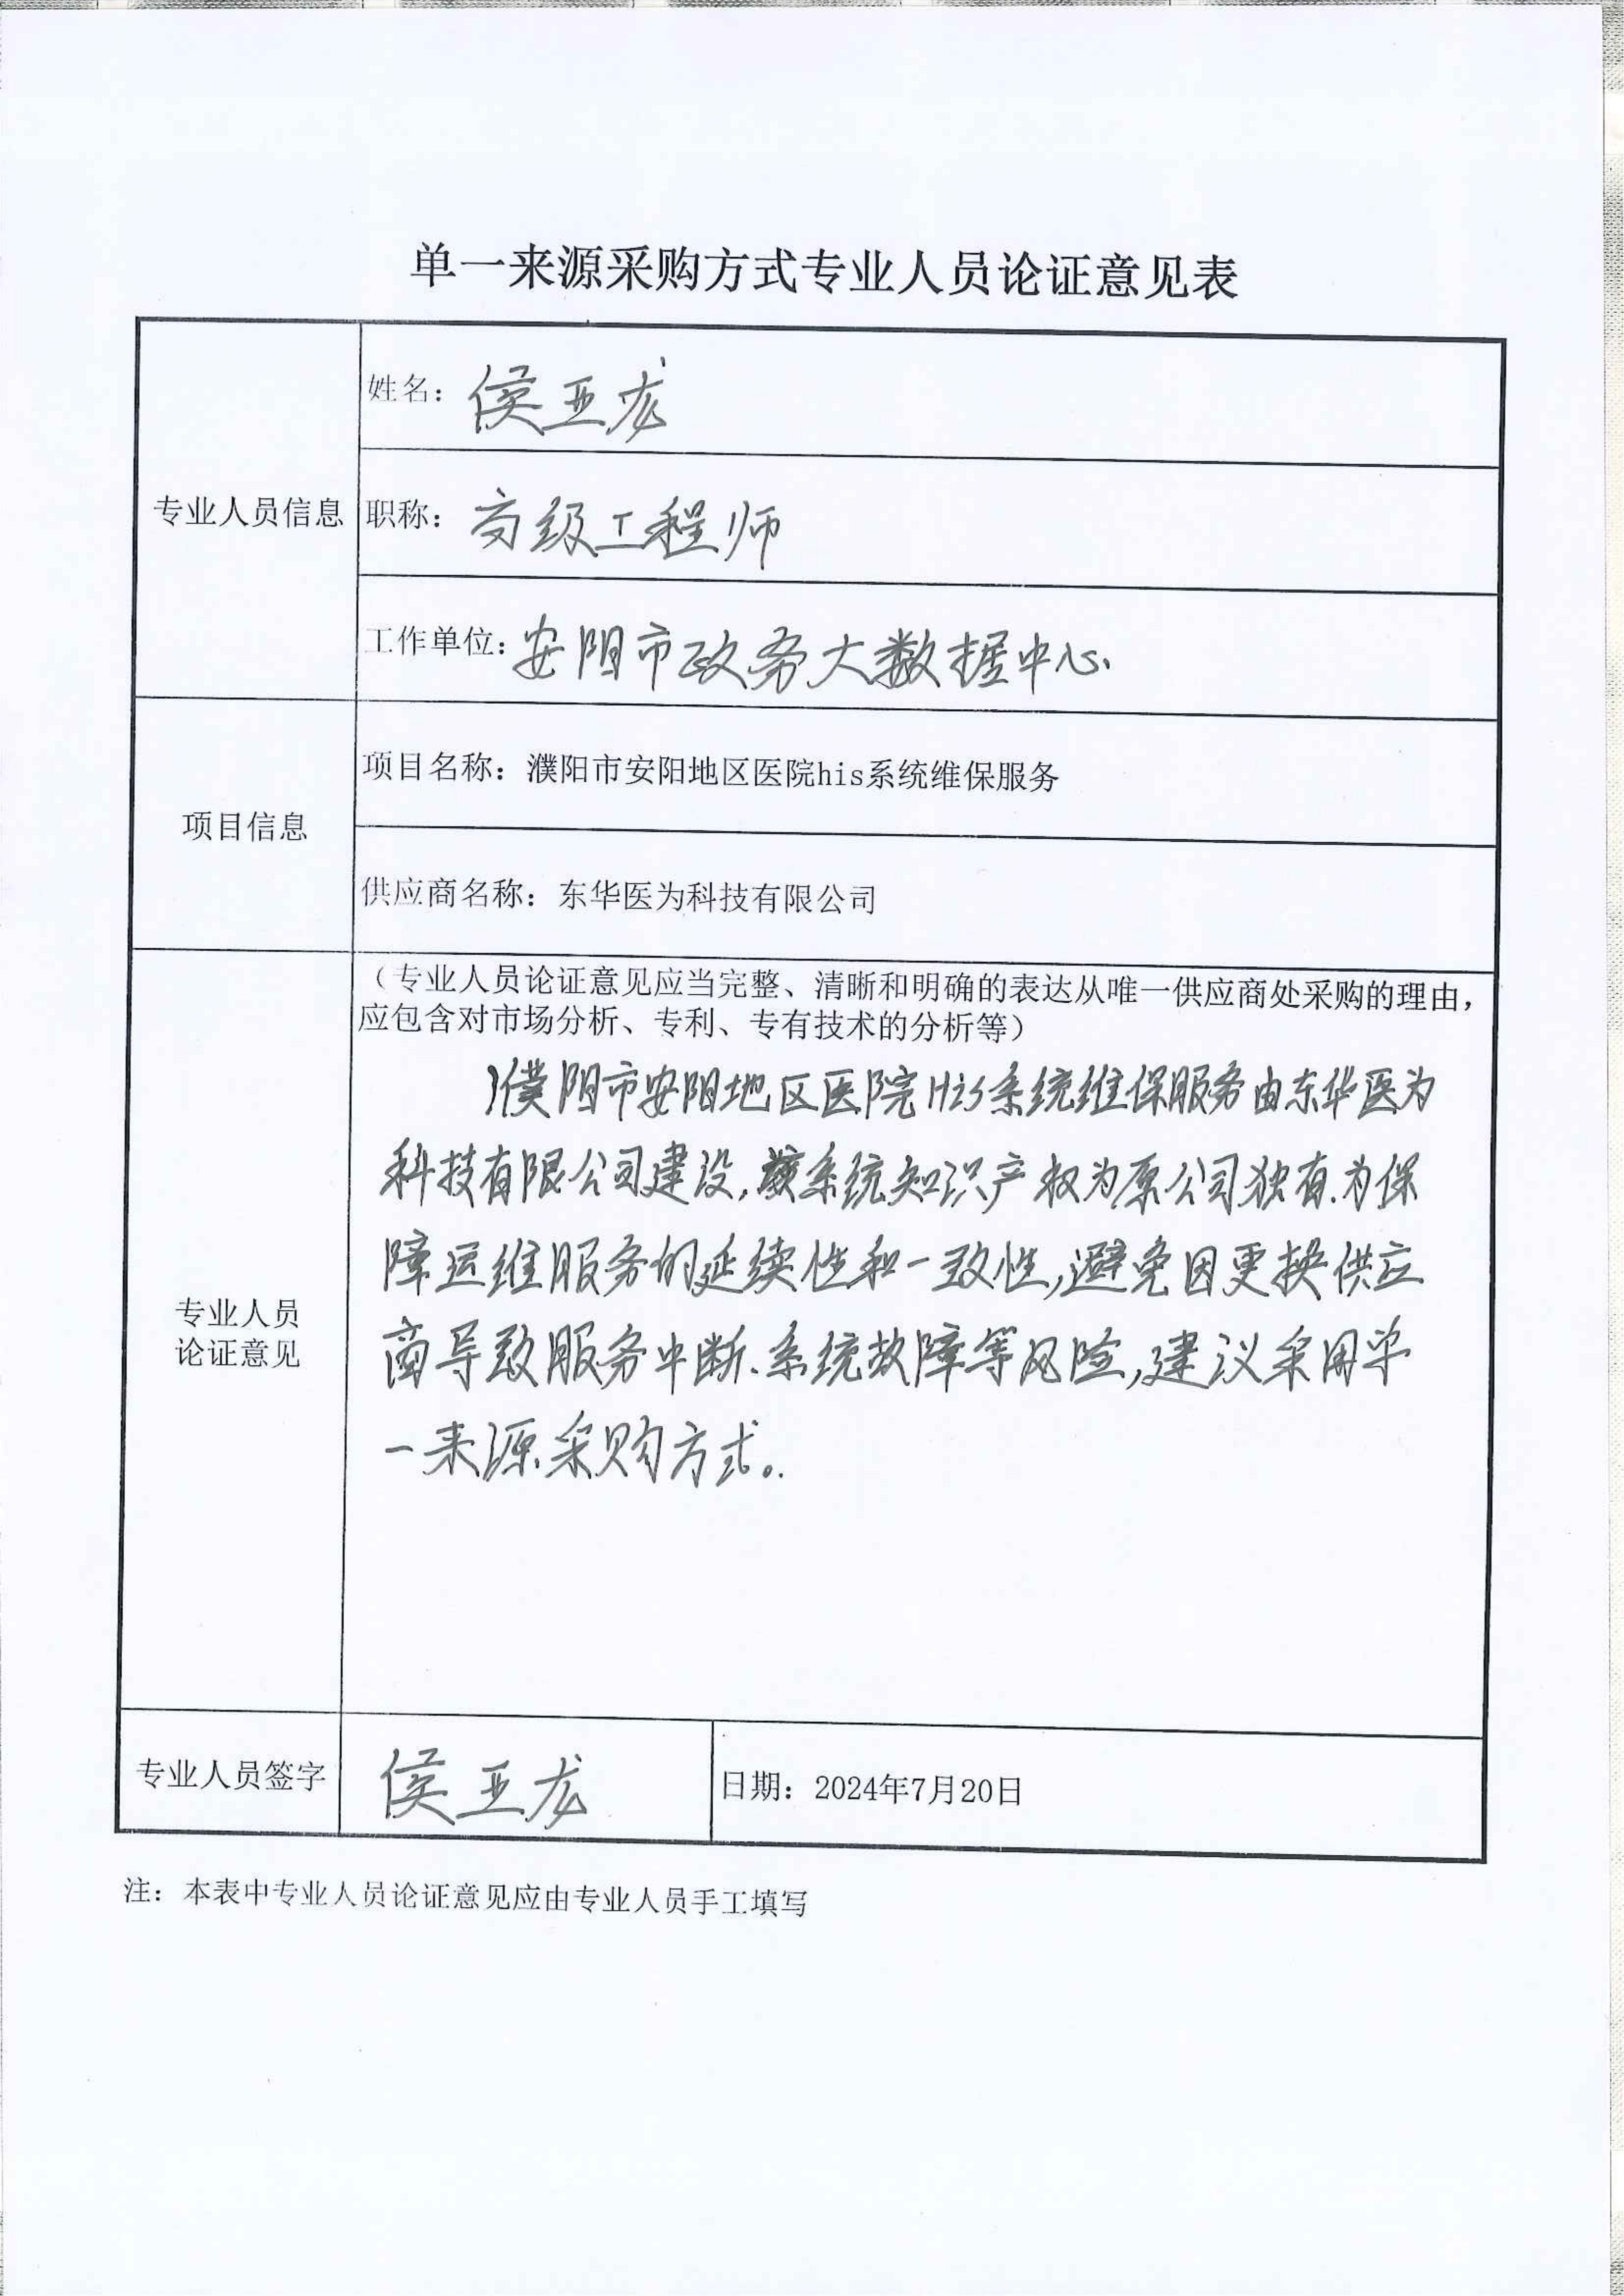 单一来源采购方式专业人员论证意见表
姓名：侯亚龙
专业人员信息
职称：高级工程师
工作单位：安阳市政务大数据中心
项目信息
项目名称：濮阳市安阳地区医院his系统维保服务
供应商名称：东华医为科技有限公司
（专业人员论证意见应当完整、清晰和明确的表达从唯一供应商处采购的理由，
应包含对市场分析、专利、专有技术的分析等）
濮阳市安阳地区医院His系统维保服务由东华医为
科技有限公司建设，该系统知识产权为原公司独有.为保
障运维服务的延续性和一致性，避免因更换供应
商导致服务中断、系统故障等风险，建议采用单
一来源采购方式。
专业人员
论证意见
专业人员签字
侯亚龙
日期：2024年7月20日
注：本表中专业人员论证意见应由专业人员手工填写